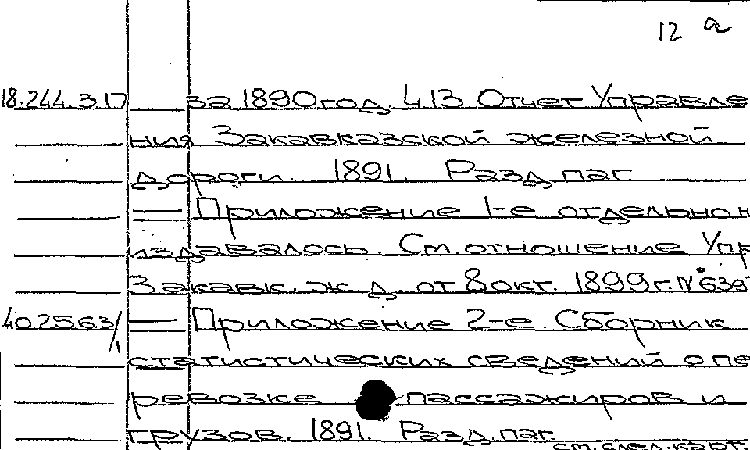 12 а
18.244.3.17 — за 1890 год. Ч.13 Отчет Управле
ния Закавказской железной
дороги. 1891. Разд. паг.
— Приложение 1-е отдельно н
издавалось. См. отношение Упр
Закавк. ж. д. от 8 окт. 1899 г. № 639
402563/1 — Приложение 2-е Сборник
статистических сведений о пе
ревозке пассажиров и
грузов. 1891. Разд. паг.
см. след. карт.